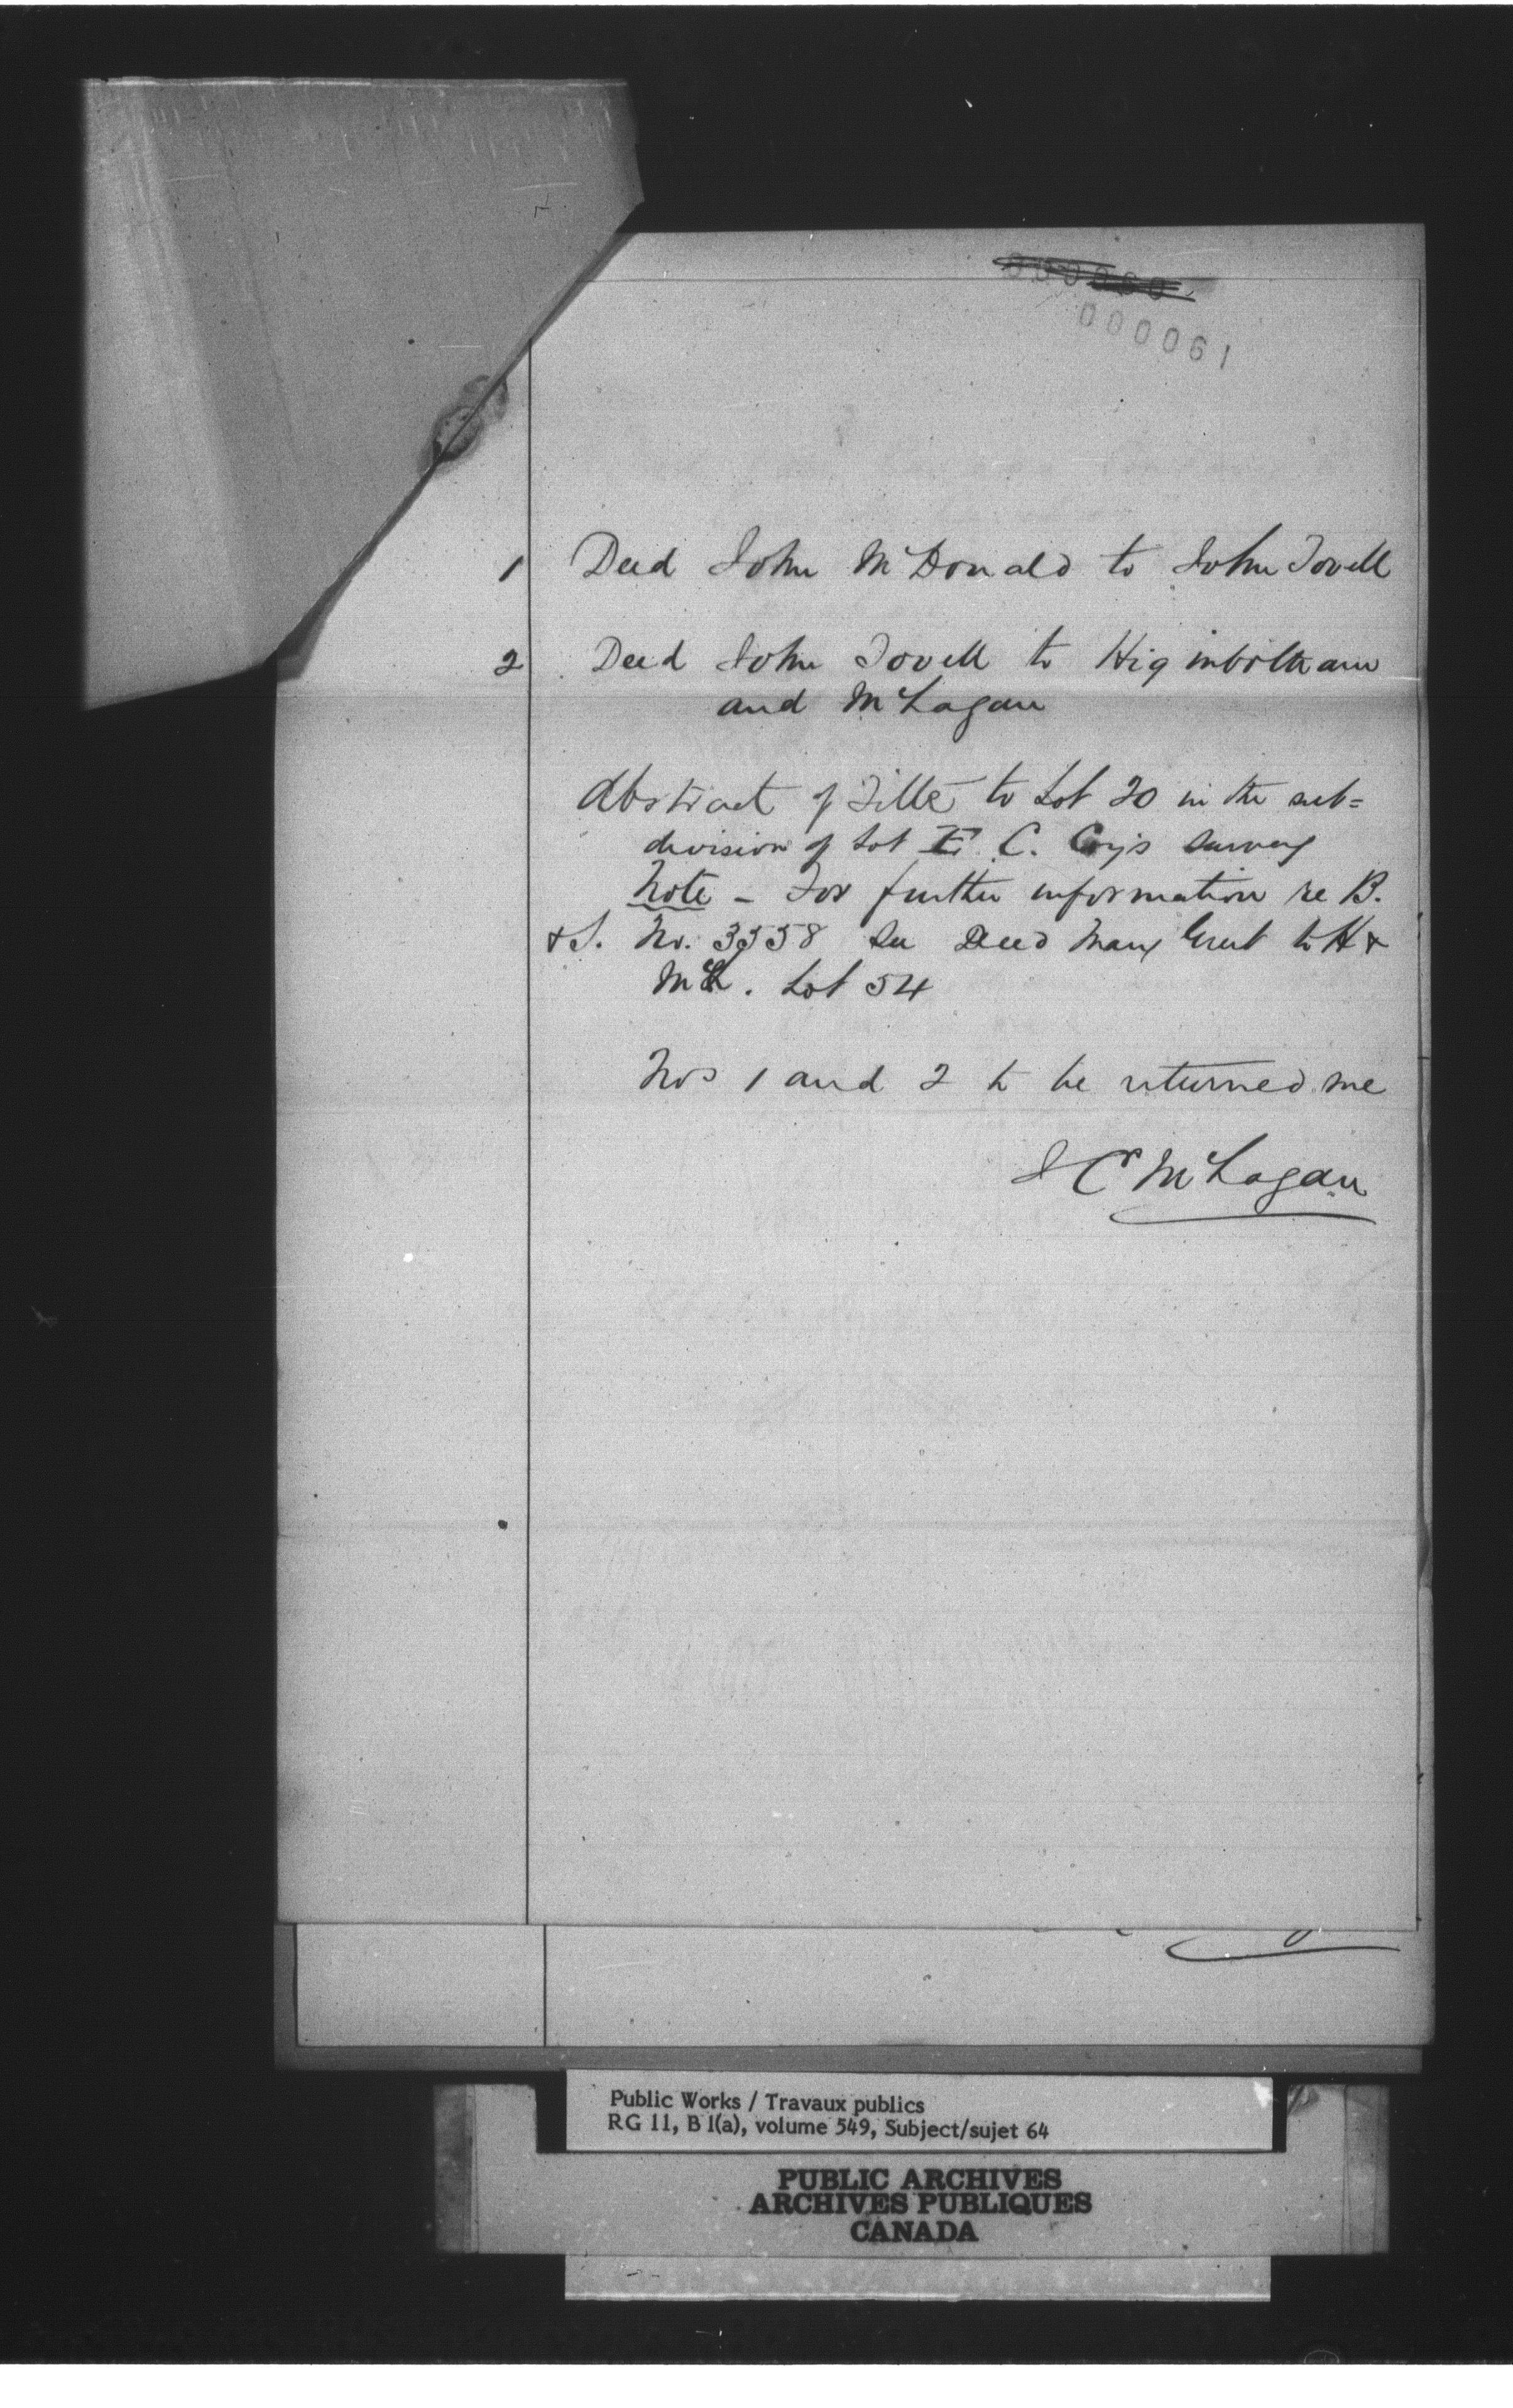 000061
1 Deed John McDonald to John Tovell
2 Deed John Tovell to Higinbotham
and McLagan
Abstract of Title to Lot 20 in the sub=
division of Lot E. C. survey
Note - For further information re B.
& S. No. 3358 see Deed Mary to H &
McL. Lot 54
Nos 1 and 2 to be returned me
J C McLagan
Public Works / Travaux publics
RG 11, B 1(a), volume 549, Subject/sujet 64
PUBLIC ARCHIVES
ARCHIVES PUBLIQUES
CANADA